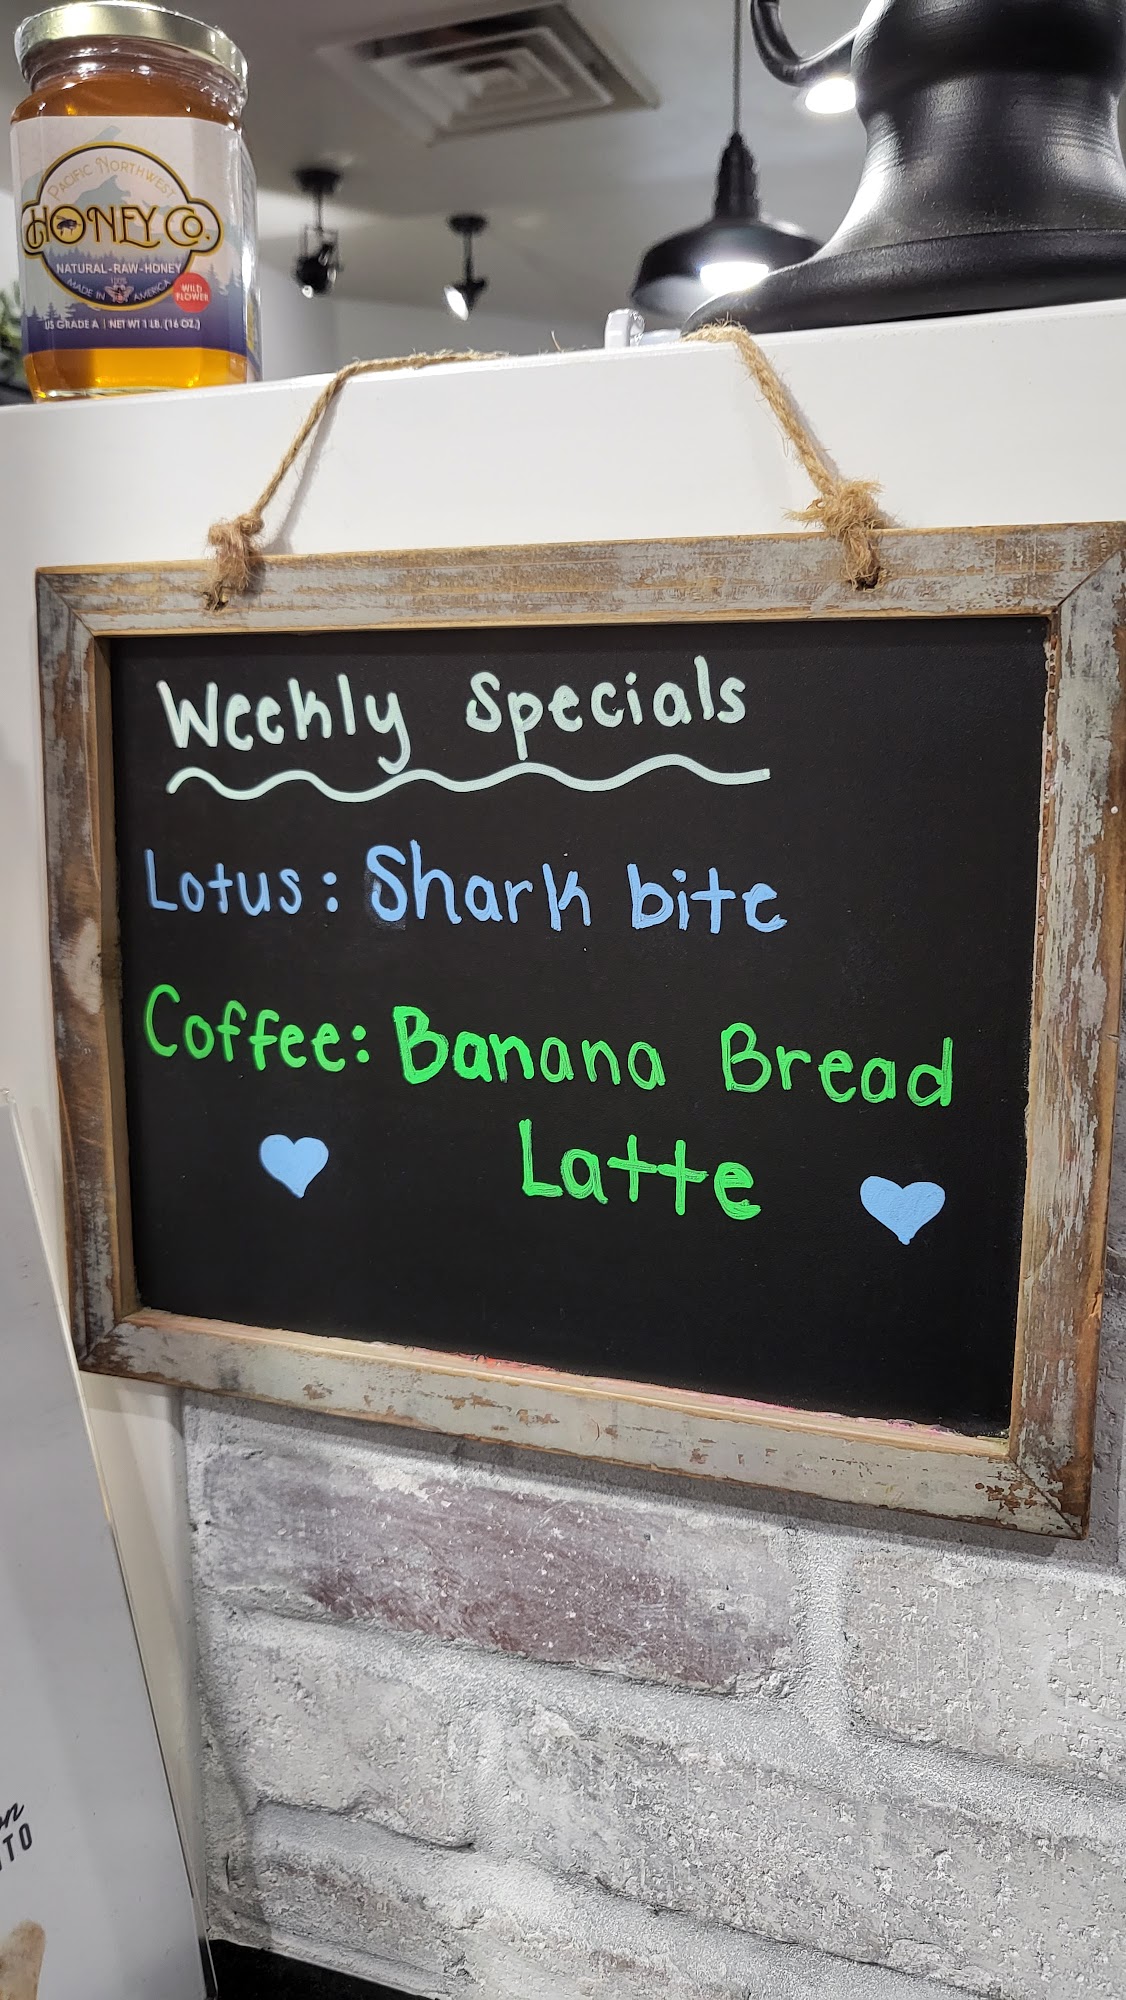 PACIFIC NORTHWEST
HONEY CO.
NATURAL-RAW-HONEY
100%
MADE IN AMERICA
WILD
FLOWER
US GRADE A | NET WT 1 LB. (16 OZ.)
Weekly Specials
Lotus: Shark bite
Coffee: Banana Bread
Latte